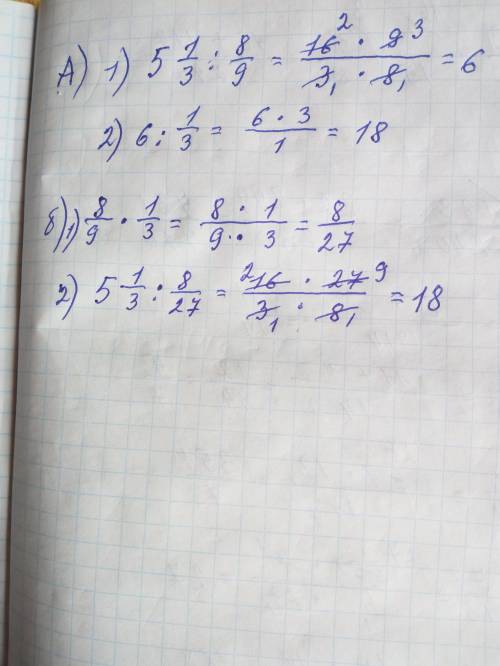 А) 1) 5 1/3 : 8/9 = 16² · 9³ / 3₁ · 8₁ = 6
2) 6 : 1/3 = 6 · 3 / 1 = 18
б) 1) 8/9 · 1/3 = 8 · 1 / 9 · 3 = 8/27
2) 5 1/3 : 8/27 = ²16 · 27⁹ / 3₁ · 8₁ = 18